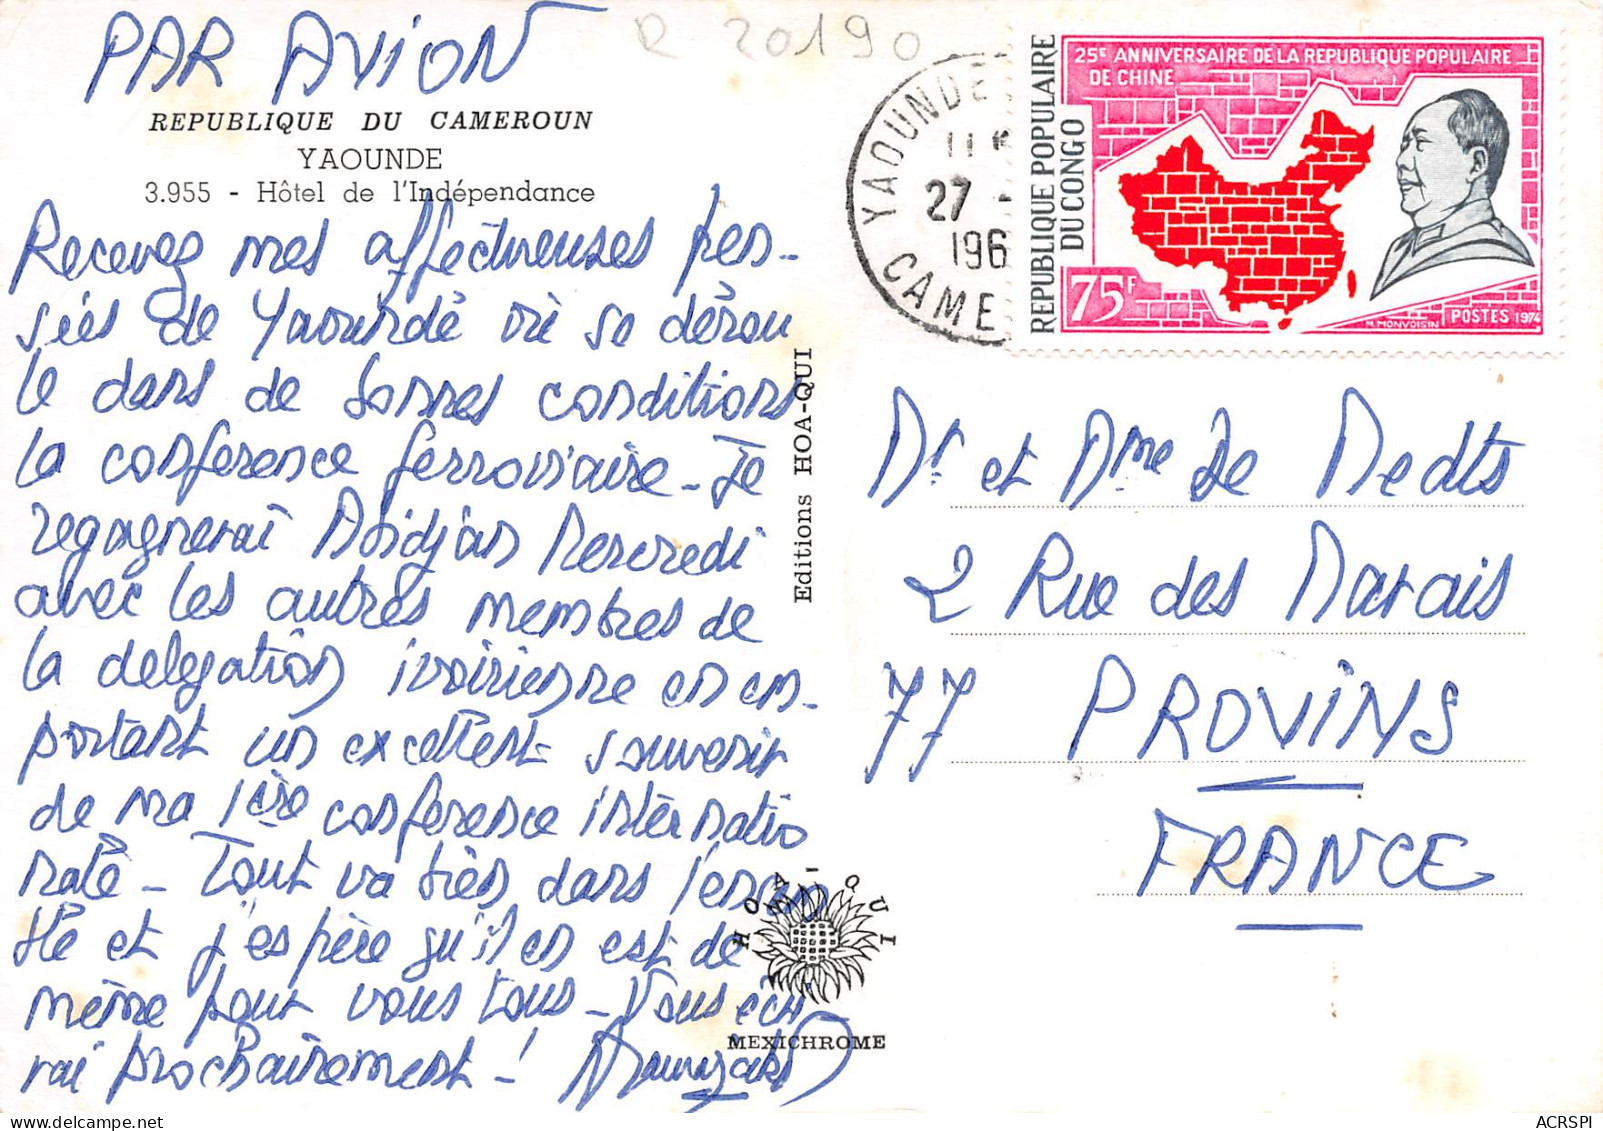 PAR AVION
R 20190
REPUBLIQUE DU CAMEROUN
YAOUNDE
3.955 - Hôtel de l'Indépendance
Recevez mes affectueuses pen-
sées de Yaoundé où se dérou
le dans de bonnes conditions
la conférence ferroviaire - Je
regagnerai Abidjan Mercredi
avec les autres membres de
la délégation ivoirienne en em-
portant un excellent souvenir
de ma 1ère conférence internatio
nale - Tout va très dans l'ensem
ble et j'espère qu'il en est de
même pour vous tous - Vous écri
rai prochainement !
Editions HOA-QUI
HOA-QUI
MEXICHROME
YAOUNDE
27 -
196
CAME
REPUBLIQUE POPULAIRE
DU CONGO
25E ANNIVERSAIRE DE LA REPUBLIQUE POPULAIRE
DE CHINE
75F
M. MONVOISIN
POSTES 1974
Mr et Mme De Medts
2 Rue des Marais
77 PROVINS
FRANCE
ACRSPI